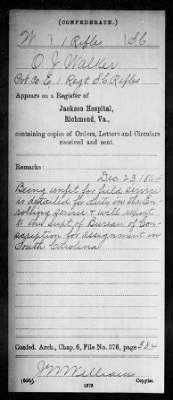 (CONFEDERATE.)
W 1 Rifles S C
O. J. Walker
Co. E, 1 Regt S.C. Rifles
Appears on a Register of
Jackson Hospital,
Richmond, Va.,
containing copies of Orders, Letters and Circulars
received and sent.
Remarks:
Dec 23, 1864
Being unfit for field service
is detailed for duty in the En
rolling service & will report
to the Supt of Bureau of Con
scription for assignment in
South Carolina
Confed. Arch., Chap. 6, File No. 376, page 324
J M Williams
Copyist.